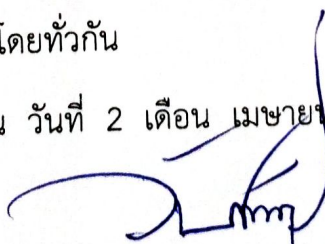 โดยทั่วกัน
วันที่ 2 เดือน เมษายน